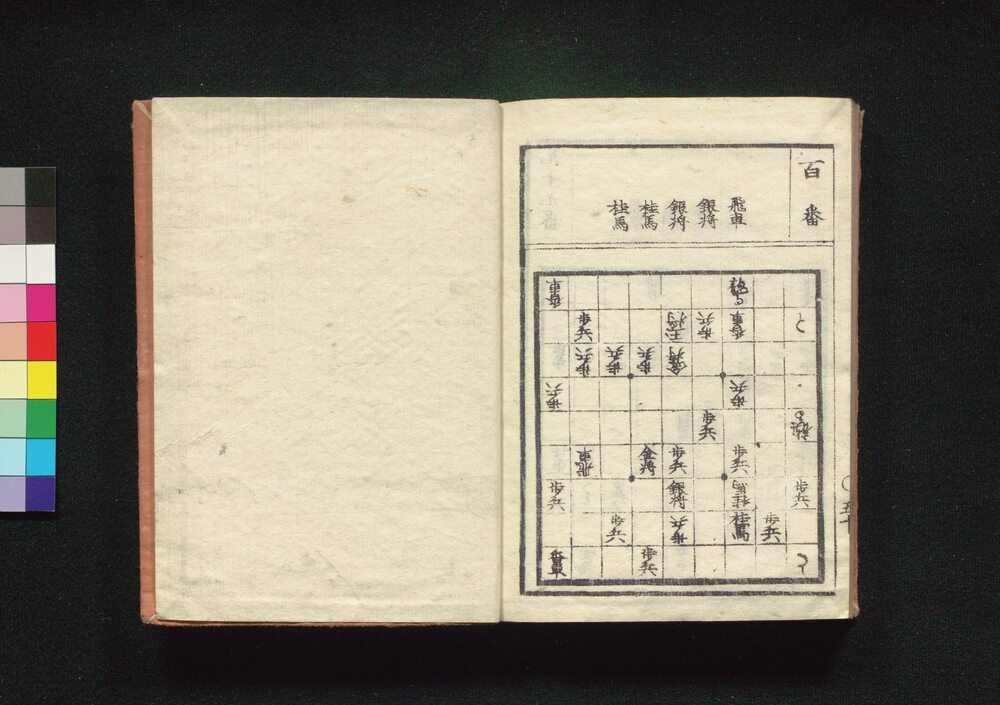 百番
飛車
銀将
銀将
桂馬
桂馬
香車
と
香車
歩兵
王将
歩兵
金将
歩兵
歩兵
歩兵
歩兵
歩兵
歩兵
歩兵
歩兵
金将
飛車
歩兵
桂馬
銀将
歩兵
歩兵
桂馬
歩兵
歩兵
と
歩兵
香車
〇五十